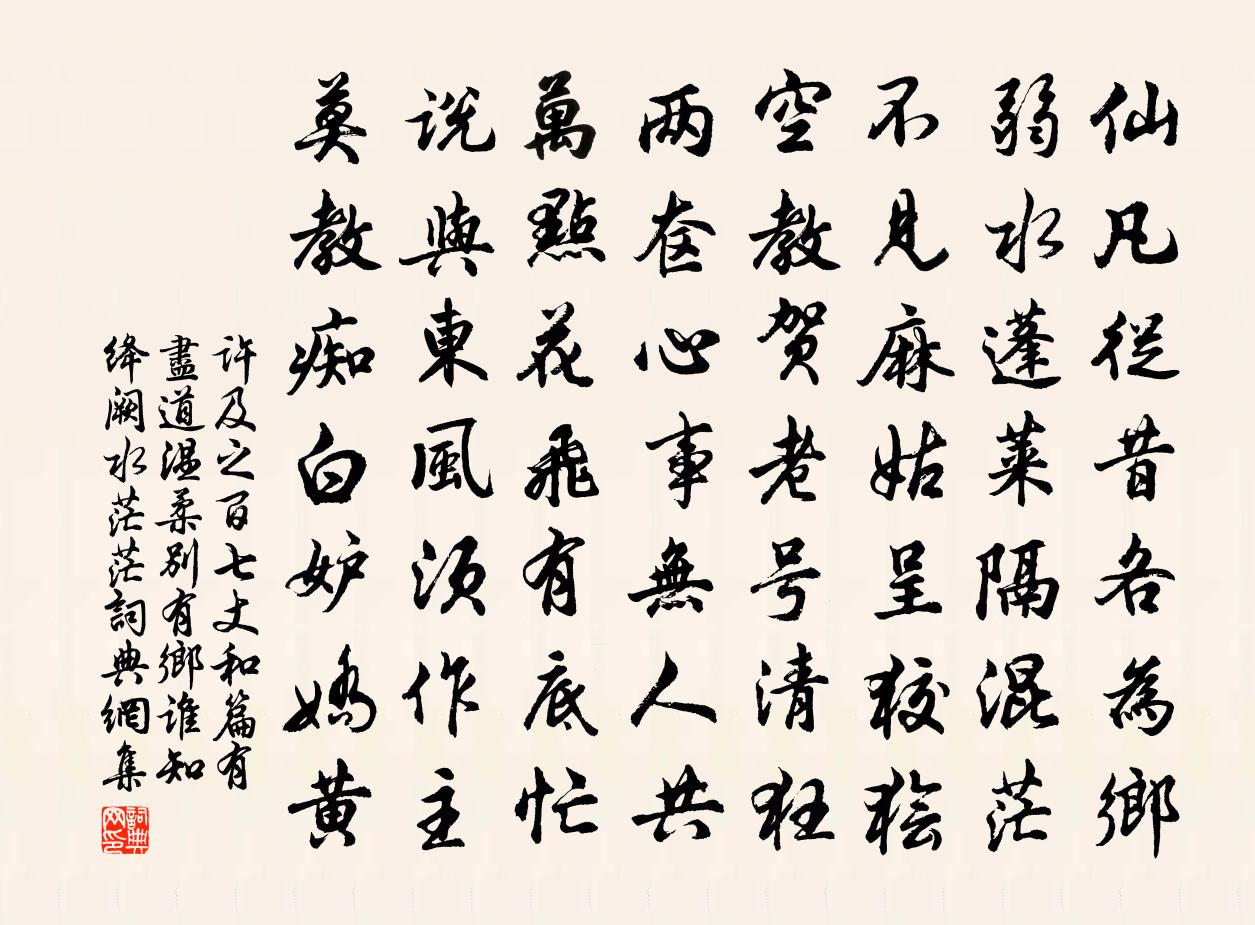 仙凡從昔各為鄉
弱水蓬萊隔混茫
不見麻姑呈狡獪
空教贺老号清狂
两奁心事無人共
萬點花飛有底忙
说與東風须作主
莫教痴白妒嬌黄
许及之百七丈和篇有
盡道温柔别有鄉谁知
绛阙水茫茫詞典網集
詞典网印